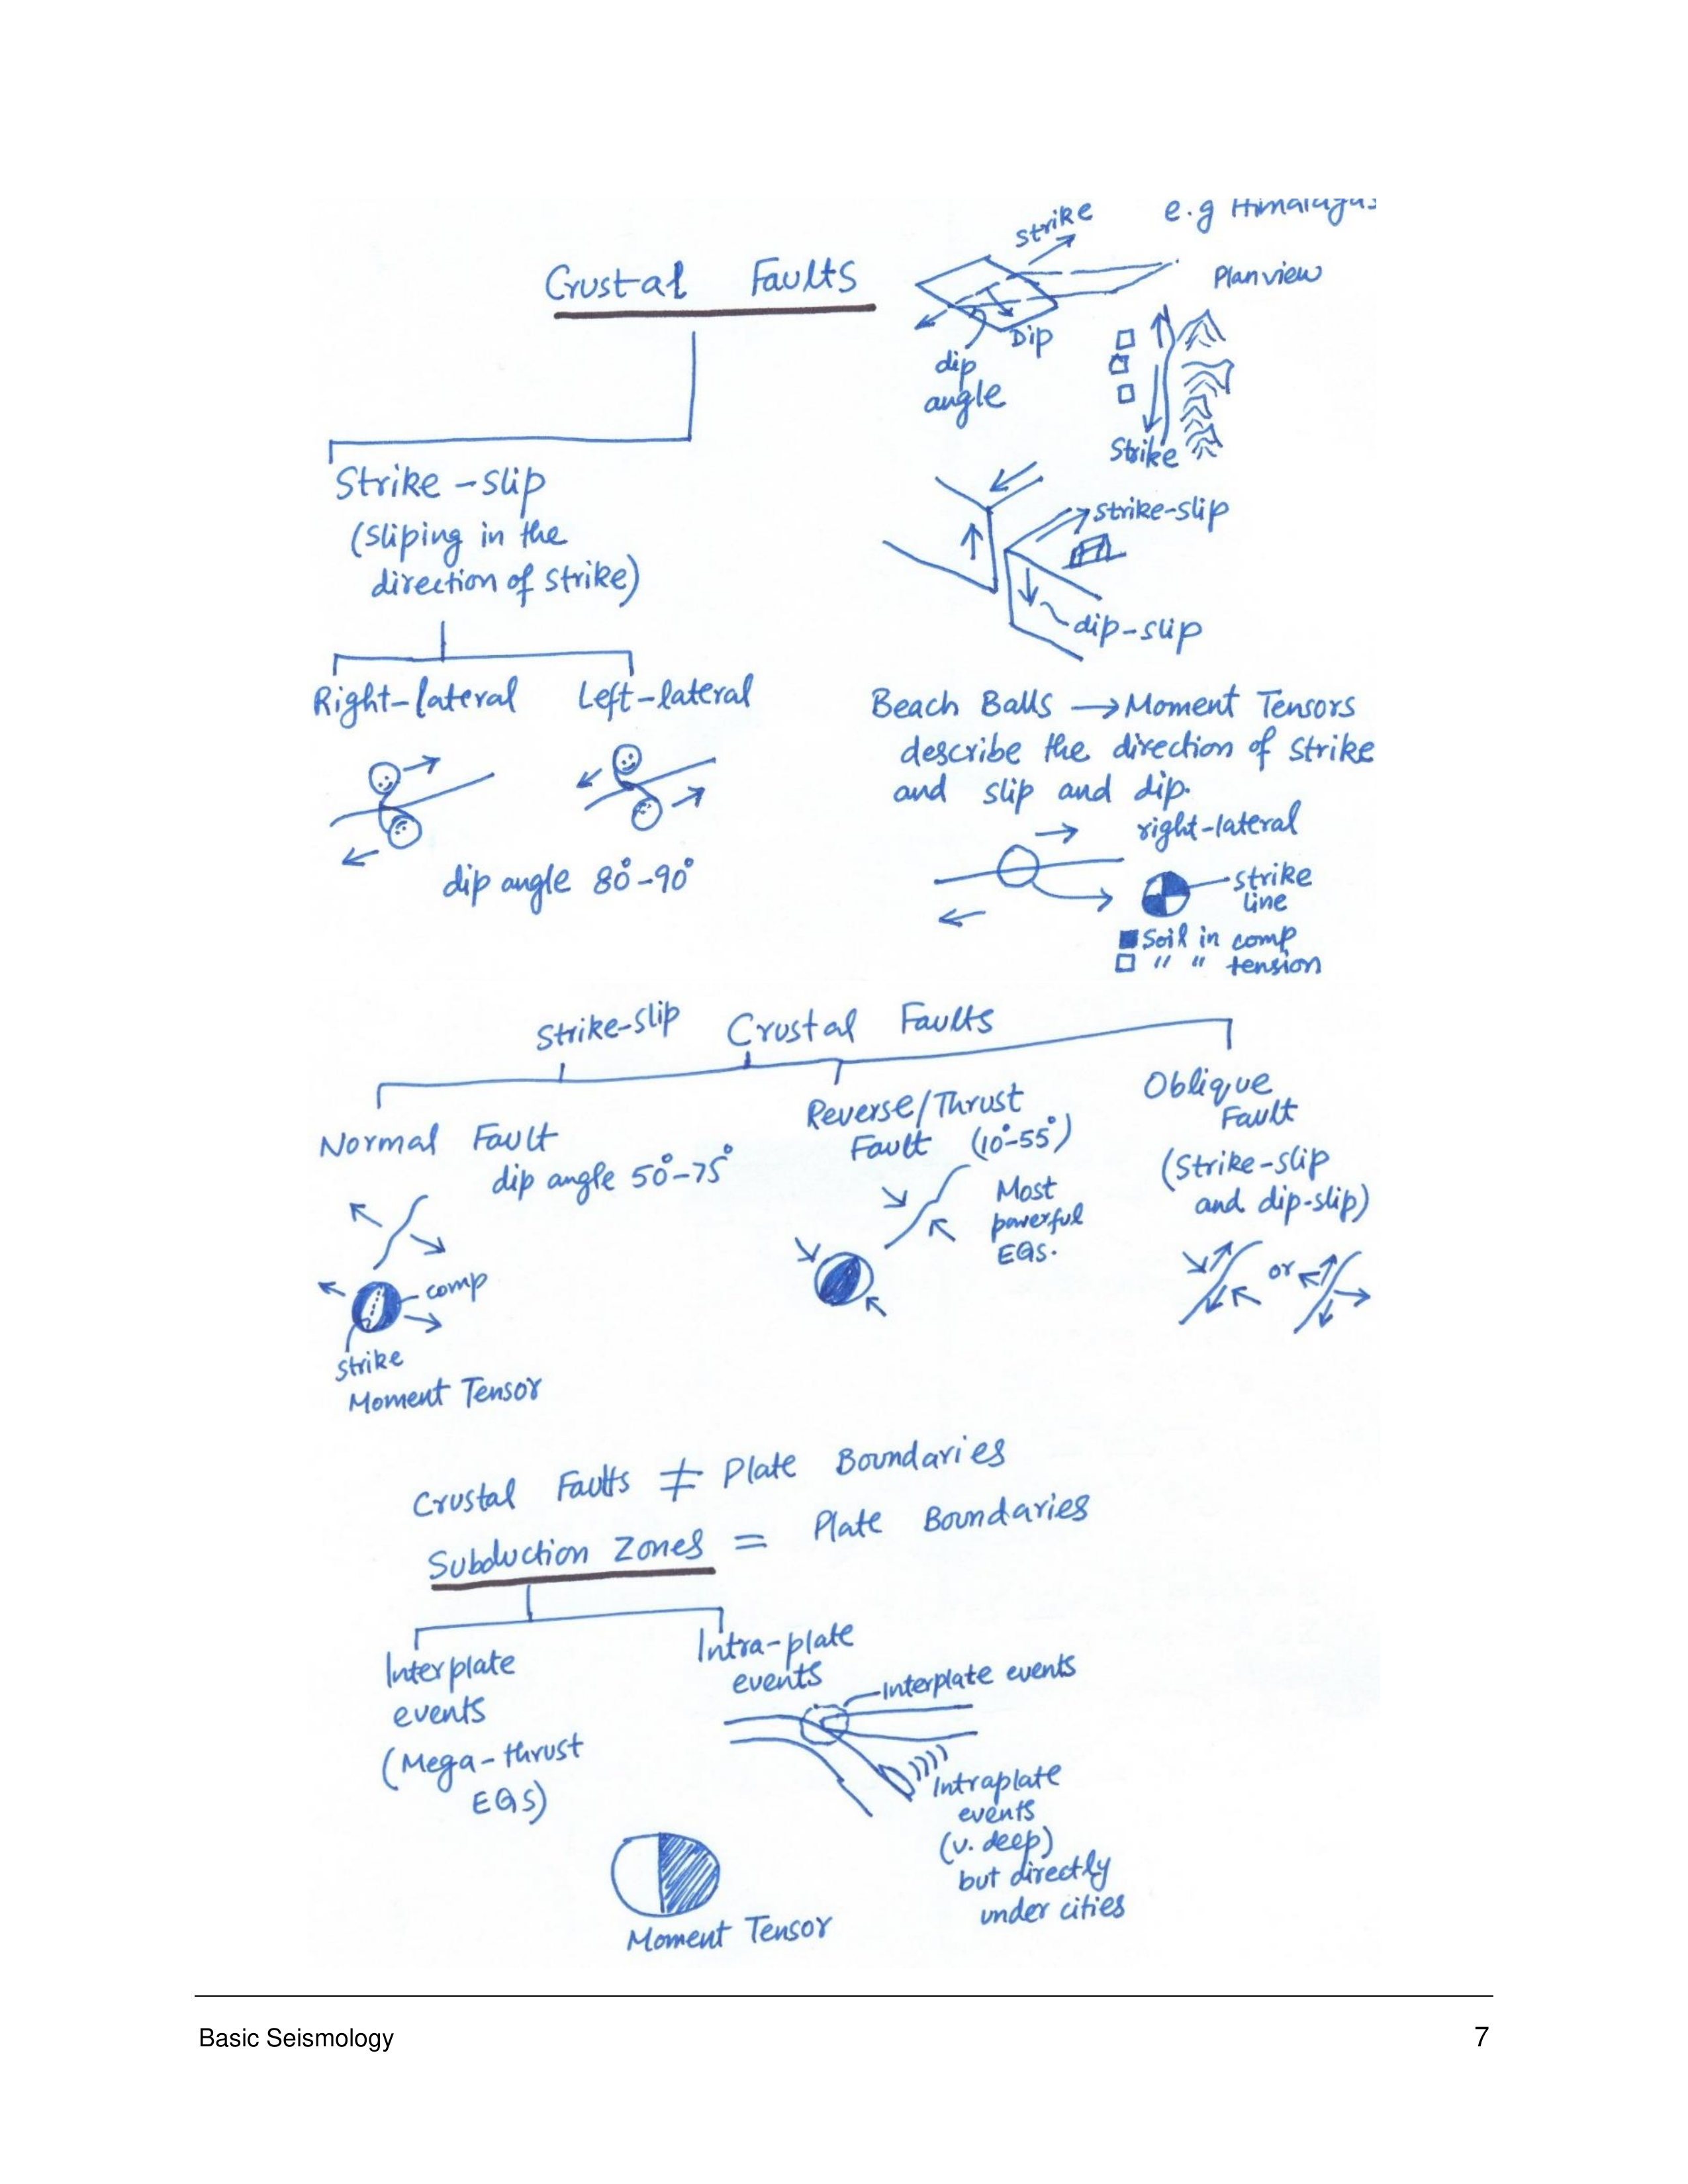 strike
e.g Himalayas
Crustal Faults
Plan view
Dip
dip
angle
Strike
Strike-slip
(Sliping in the
direction of strike)
strike-slip
dip-slip
Right-lateral
Left-lateral
dip angle 80°-90°
Beach Balls → Moment Tensors
describe the direction of strike
and slip and dip.
right-lateral
strike
line
■ Soil in comp
□ " " tension
Strike-slip
Crustal Faults
Normal Fault
dip angle 50°-75°
comp
strike
Moment Tensor
Reverse/Thrust
Fault (10°-55°)
Most
powerful
EQs.
Oblique
Fault
(Strike-slip
and dip-slip)
or
Crustal Faults ≠ Plate Boundaries
Subduction Zones = Plate Boundaries
Interplate
events
(Mega-thrust
EQS)
Intra-plate
events
Interplate events
Intraplate
events
(v. deep)
but directly
under cities
Moment Tensor
Basic Seismology
7